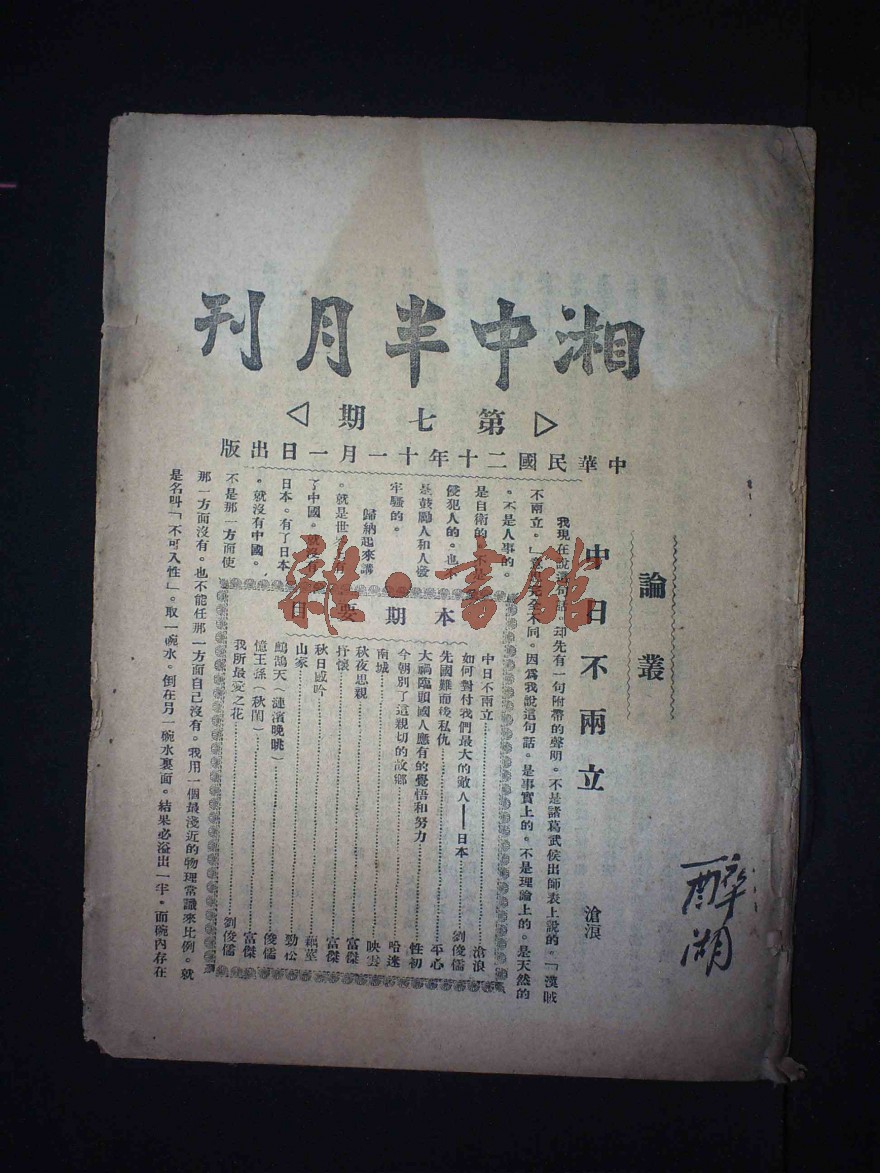 湘中半月刊
第七期
中華民國二十年十一月一日出版
論叢
中日不兩立
滄浪
我現在說這句話。却先有一句附帶的聲明。不是諸葛武侯出師表上說的。「漢賊
不兩立。」意思完全不同。因爲我說這句話。是事實上的。不是理論上的。是天然的
。不是人事的。
是自衛的。不是
侵犯人的。也不
是鼓勵人和人發
牢騷的。
歸納起來講
。就是世界有
了中國。就沒有
日本。有了日本
。就沒有中國。
不是那一方面使
那一方面沒有。也不能任那一方面自己沒有。我用一個最淺近的物理常識來比例。就
是名叫「不可入性」。取一碗水。倒在另一碗水裏面。結果必溢出一半。面碗內存在
本期要目
中日不兩立 滄浪
如何對付我們最大的敵人——日本 劉俊儒
先國難而後私仇 平心
大禍臨頭國人應有的覺悟和努力 性初
今朝別了這親切的故鄉 哈迷
南城 映雲
秋夜思親 富傑
抒懷 富傑
秋日感吟
山家 勁松
鷓鴣天(漣濱晚眺) 俊儒
憶王孫(秋閨) 富傑
我所最愛之花 劉俊儒
醉湖
雜·書館